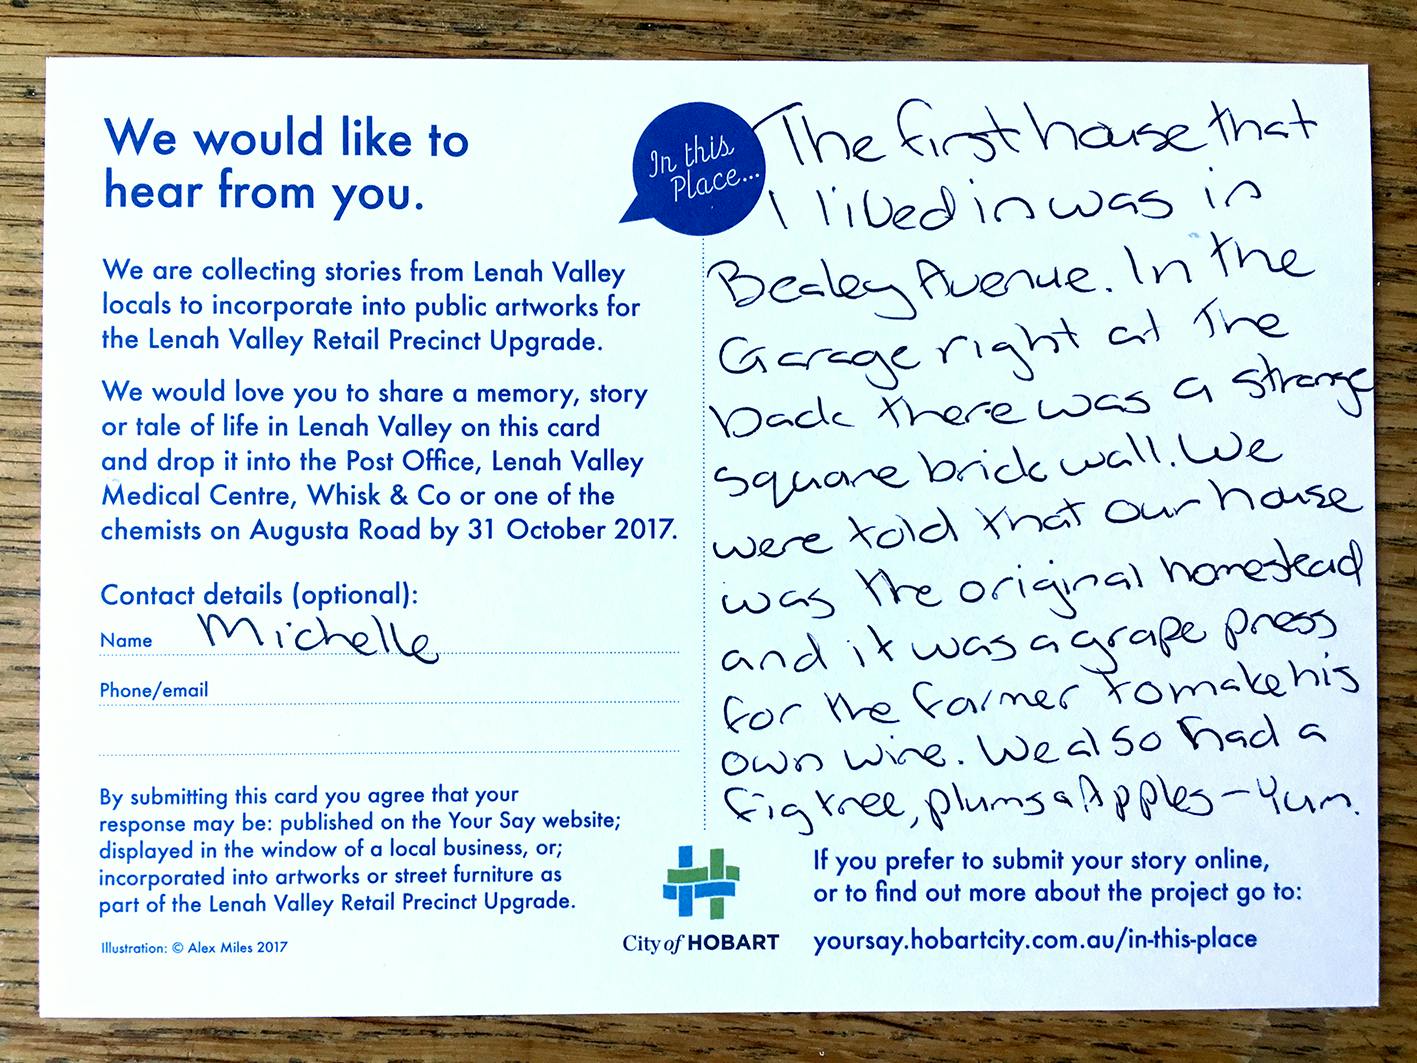 We would like to
hear from you.
We are collecting stories from Lenah Valley
locals to incorporate into public artworks for
the Lenah Valley Retail Precinct Upgrade.
We would love you to share a memory, story
or tale of life in Lenah Valley on this card
and drop it into the Post Office, Lenah Valley
Medical Centre, Whisk & Co or one of the
chemists on Augusta Road by 31 October 2017.
Contact details (optional):
Name Michelle
Phone/email
By submitting this card you agree that your
response may be: published on the Your Say website;
displayed in the window of a local business, or;
incorporated into artworks or street furniture as
part of the Lenah Valley Retail Precinct Upgrade.
Illustration: © Alex Miles 2017
In this
Place...
The first house that
I lived in was in
Bealey Avenue. In the
Garage right at the
back there was a strange
square brick wall. We
were told that our house
was the original homestead
and it was a grape press
for the farmer to make his
own wine. We also had a
fig tree, plums & Apples - Yum.
City of HOBART
If you prefer to submit your story online,
or to find out more about the project go to:
yoursay.hobartcity.com.au/in-this-place